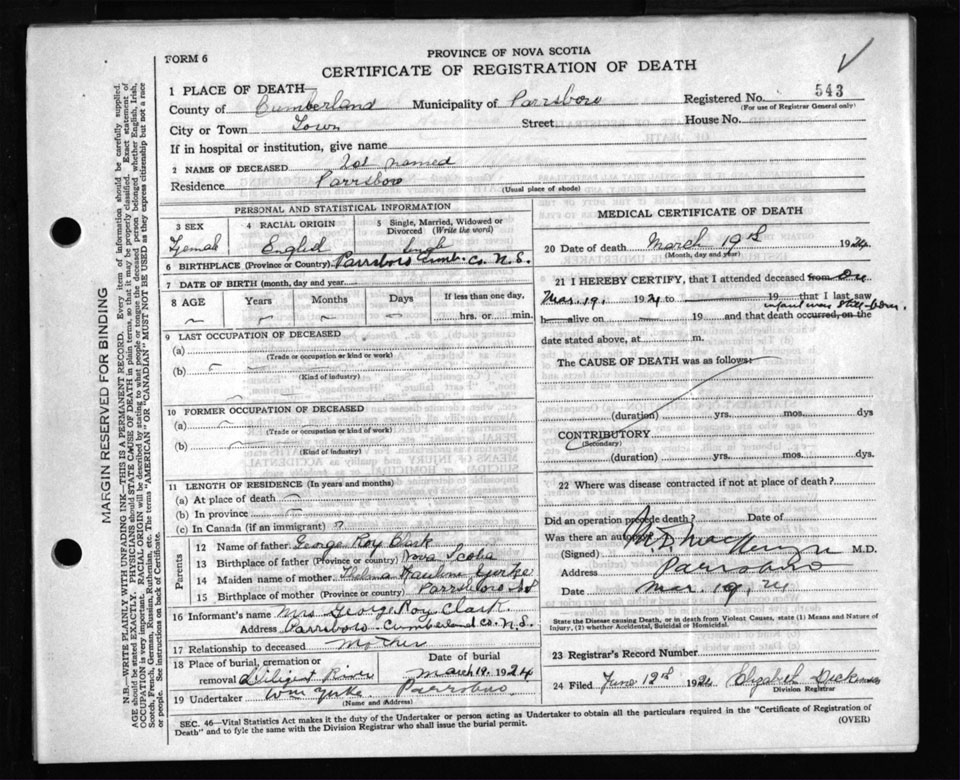 PROVINCE OF NOVA SCOTIA
FORM 6
CERTIFICATE OF REGISTRATION OF DEATH
1 PLACE OF DEATH
County of Cumberland Municipality of Parrsboro Registered No. 543
(For use of Registrar General only)
City or Town Town Street House No.
If in hospital or institution, give name
2 NAME OF DECEASED Not named
Residence Parrsboro
(Usual place of abode)
PERSONAL AND STATISTICAL INFORMATION
3 SEX 4 RACIAL ORIGIN 5 Single, Married, Widowed or Divorced (Write the word)
Female
6 BIRTHPLACE (Province or Country) Parrsboro Cumb. Co. N.S.
7 DATE OF BIRTH (month, day and year)
8 AGE Years Months Days If less than one day,
hrs. or min.
9 LAST OCCUPATION OF DECEASED
(a)
(Trade or occupation or kind or work)
(b)
(Kind of industry)
10 FORMER OCCUPATION OF DECEASED
(a)
(Trade or occupation or kind of work)
(b)
(Kind of industry)
11 LENGTH OF RESIDENCE (In years and months)
(a) At place of death
(b) In province
(c) In Canada (if an immigrant)
Parents
12 Name of father George Roy Clark
13 Birthplace of father (Province or Country) Nova Scotia
14 Maiden name of mother
15 Birthplace of mother (Province or Country) Parrsboro N.S.
16 Informant's name Mrs. George Roy Clark.
Address Parrsboro. Cumberland Co. N.S.
17 Relationship to deceased Mother
18 Place of burial, cremation or removal Diligent River Date of burial March 19. 1924
19 Undertaker Wm Parrsboro
(Name and Address)
MEDICAL CERTIFICATE OF DEATH
20 Date of death March 19th 1924
(Month, day and year)
21 I HEREBY CERTIFY, that I attended deceased from On
Mar. 19, 1924 to 19 that I last saw
infant was still-born.
h alive on 19 and that death occurred, on the
date stated above, at m.
The CAUSE OF DEATH was as follows:
(duration) yrs. mos. dys
CONTRIBUTORY
(Secondary)
(duration) yrs. mos. dys.
22 Where was disease contracted if not at place of death?
Did an operation precede death? Date of
Was there an
(Signed) MacKenzie M.D.
Address Parrsboro
Date Mar. 19, 24
State the Disease causing Death, or in death from Violent Causes, state (1) Means and Nature of Injury, (2) whether Accidental, Suicidal or Homicidal.
23 Registrar's Record Number
24 Filed June 12th 1924 Elizabeth
Division Registrar
SEC. 46—Vital Statistics Act makes it the duty of the Undertaker or person acting as Undertaker to obtain all the particulars required in the "Certificate of Registration of
Death" and to fyle the same with the Division Registrar who shall issue the burial permit.
(OVER)
MARGIN RESERVED FOR BINDING
N.B.—WRITE PLAINLY WITH UNFADING INK—THIS IS A PERMANENT RECORD. Every item of information should be carefully supplied.
AGE should be stated EXACTLY. PHYSICIANS should STATE CAUSE OF DEATH in plain terms, so that it may be properly classified. Exact statement of
OCCUPATION is very important. RACIAL ORIGIN will be described by stating to what people or tongue the deceased person belonged whether English, Irish,
Scotch, French, German, Russian, Ruthenian, etc. The terms "AMERICAN" OR "CANADIAN" MUST NOT BE USED as they express citizenship but not a race
or people. See instructions on back of Certificate.